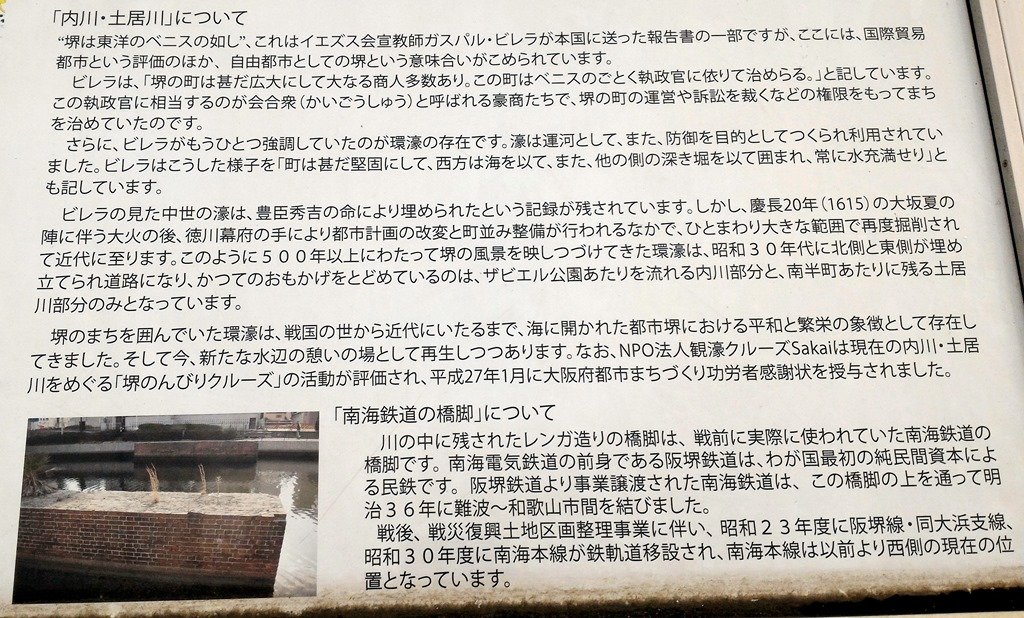 「内川・土居川」について
“堺は東洋のベニスの如し”、これはイエズス会宣教師ガスパル・ビレラが本国に送った報告書の一部ですが、ここには、国際貿易
都市という評価のほか、自由都市としての堺という意味合いがこめられています。
ビレラは、「堺の町は甚だ広大にして大なる商人多数あり。この町はベニスのごとく執政官に依りて治めらる。」と記しています。
この執政官に相当するのが会合衆（かいごうしゅう）と呼ばれる豪商たちで、堺の町の運営や訴訟を裁くなどの権限をもってまち
を治めていたのです。
さらに、ビレラがもうひとつ強調していたのが環濠の存在です。濠は運河として、また、防御を目的としてつくられ利用されてい
ました。ビレラはこうした様子を「町は甚だ堅固にして、西方は海を以て、また、他の側の深き堀を以て囲まれ、常に水充満せり」と
も記しています。
ビレラの見た中世の濠は、豊臣秀吉の命により埋められたという記録が残されています。しかし、慶長20年（1615）の大坂夏の
陣に伴う大火の後、徳川幕府の手により都市計画の改変と町並み整備が行われるなかで、ひとまわり大きな範囲で再度掘削され
て近代に至ります。このように５００年以上にわたって堺の風景を映しつづけてきた環濠は、昭和３０年代に北側と東側が埋め
立てられ道路になり、かつてのおもかげをとどめているのは、ザビエル公園あたりを流れる内川部分と、南半町あたりに残る土居
川部分のみとなっています。
堺のまちを囲んでいた環濠は、戦国の世から近代にいたるまで、海に開かれた都市堺における平和と繁栄の象徴として存在し
てきました。そして今、新たな水辺の憩いの場として再生しつつあります。なお、NPO法人観濠クルーズSakaiは現在の内川・土居
川をめぐる「堺のんびりクルーズ」の活動が評価され、平成27年1月に大阪府都市まちづくり功労者感謝状を授与されました。
「南海鉄道の橋脚」について
川の中に残されたレンガ造りの橋脚は、戦前に実際に使われていた南海鉄道の
橋脚です。南海電気鉄道の前身である阪堺鉄道は、わが国最初の純民間資本によ
る民鉄です。阪堺鉄道より事業譲渡された南海鉄道は、この橋脚の上を通って明
治３６年に難波～和歌山市間を結びました。
戦後、戦災復興土地区画整理事業に伴い、昭和２３年度に阪堺線・同大浜支線、
昭和３０年度に南海本線が鉄軌道移設され、南海本線は以前より西側の現在の位
置となっています。